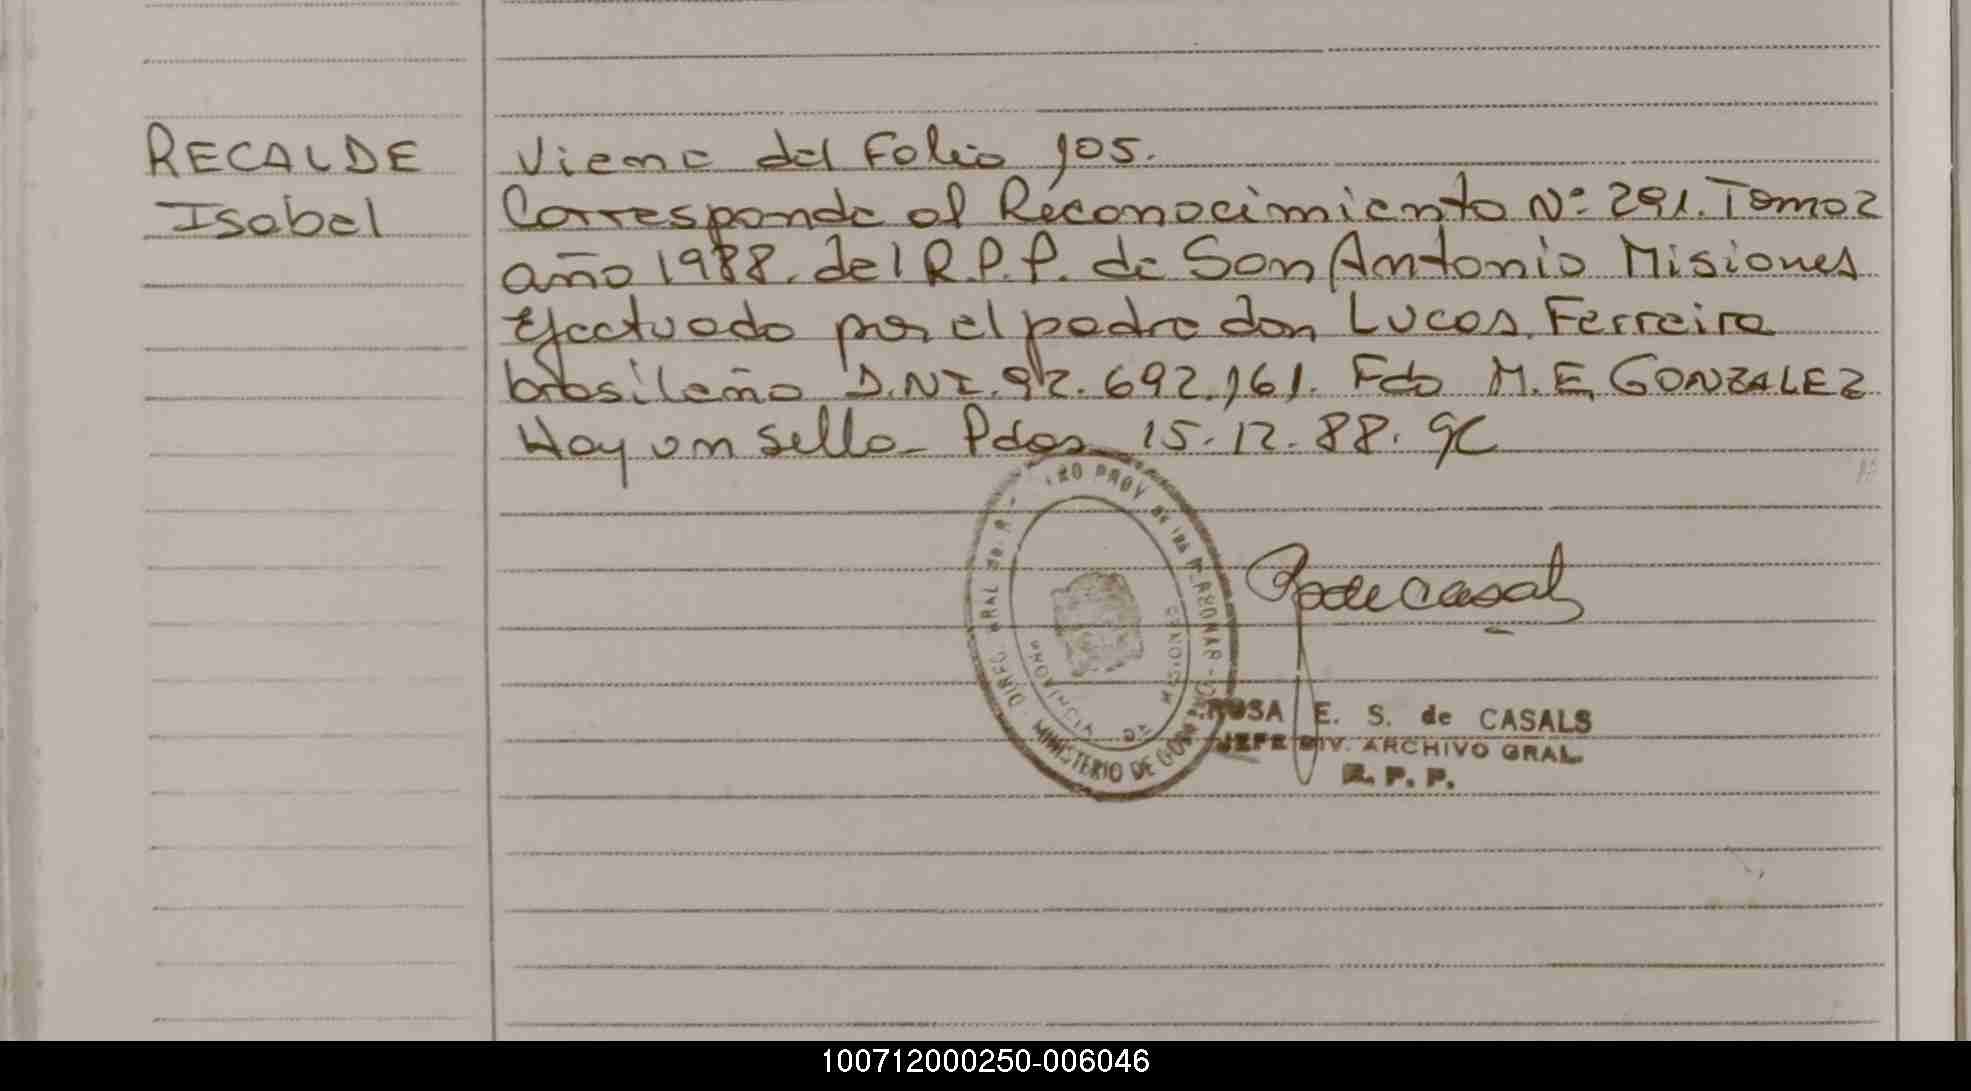 RECALDE
Isabel
Viene del Folio 105.
Corresponde al Reconocimiento Nº 291. Tomo 2
año 1988. del R.P.P. de San Antonio Misiones
efectuado por el padre don Lucas Ferreira
brasileño D.N.I. 92.692.161. Fdo M.E. GONZALEZ
Hay un sello_ Pdas 15.12.88. gc
DIREC. GRAL de R
PROV de las PERSONAS
MINISTERIO DE GOB
PROVINCIA DE MISIONES
ROSA E. S. de CASALS
JEFE DIV. ARCHIVO GRAL.
R. P. P.
100712000250-006046